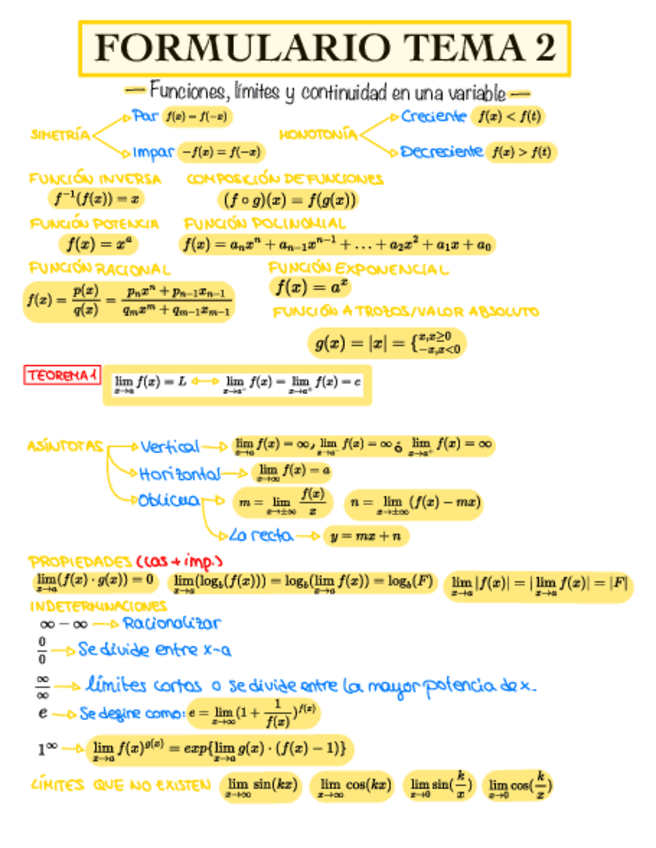 FORMULARIO TEMA 2
— Funciones, límites y continuidad en una variable —
SIMETRÍA
Par f(x) = f(−x)
Impar −f(x) = f(−x)
MONOTONÍA
Creciente f(x) < f(t)
Decreciente f(x) > f(t)
FUNCIÓN INVERSA
f⁻¹(f(x)) = x
COMPOSICIÓN DE FUNCIONES
(f ∘ g)(x) = f(g(x))
FUNCIÓN POTENCIA
f(x) = xᵃ
FUNCIÓN POLINOMIAL
f(x) = aₙxⁿ + aₙ₋₁xⁿ⁻¹ + … + a₂x² + a₁x + a₀
FUNCIÓN RACIONAL
f(x) = p(x)/q(x) = (pₙxⁿ + pₙ₋₁xₙ₋₁)/(qₘxᵐ + qₘ₋₁xₘ₋₁)
FUNCIÓN EXPONENCIAL
f(x) = aˣ
FUNCIÓN A TROZOS/VALOR ABSOLUTO
g(x) = |x| = {x,x≥0
−x,x<0
TEOREMA 1
lim x→a f(x) = L ↔ lim x→a⁻ f(x) = lim x→a⁺ f(x) = c
ASÍNTOTAS
Vertical → lim x→a f(x) = ∞, lim x→a⁻ f(x) = ∞ ó lim x→a⁺ f(x) = ∞
Horizontal → lim x→∞ f(x) = a
Oblicua → m = lim x→±∞ f(x)/x n = lim x→±∞ (f(x) − mx)
La recta → y = mx + n
PROPIEDADES (las + imp.)
lim x→a (f(x) · g(x)) = 0 lim x→a (log_b(f(x))) = log_b(lim x→a f(x)) = log_b(F) lim x→a |f(x)| = |lim x→a f(x)| = |F|
INDETERMINACIONES
∞ − ∞ → Racionalizar
0/0 → Se divide entre x-a
∞/∞ → límites cortos o se divide entre la mayor potencia de x.
e → Se define como: e = lim x→∞ (1 + 1/f(x))^f(x)
1^∞ → lim x→a f(x)^g(x) = exp{lim x→a g(x) · (f(x) − 1)}
LÍMITES QUE NO EXISTEN lim x→∞ sin(kx) lim x→∞ cos(kx) lim x→0 sin(k/x) lim x→0 cos(k/x)